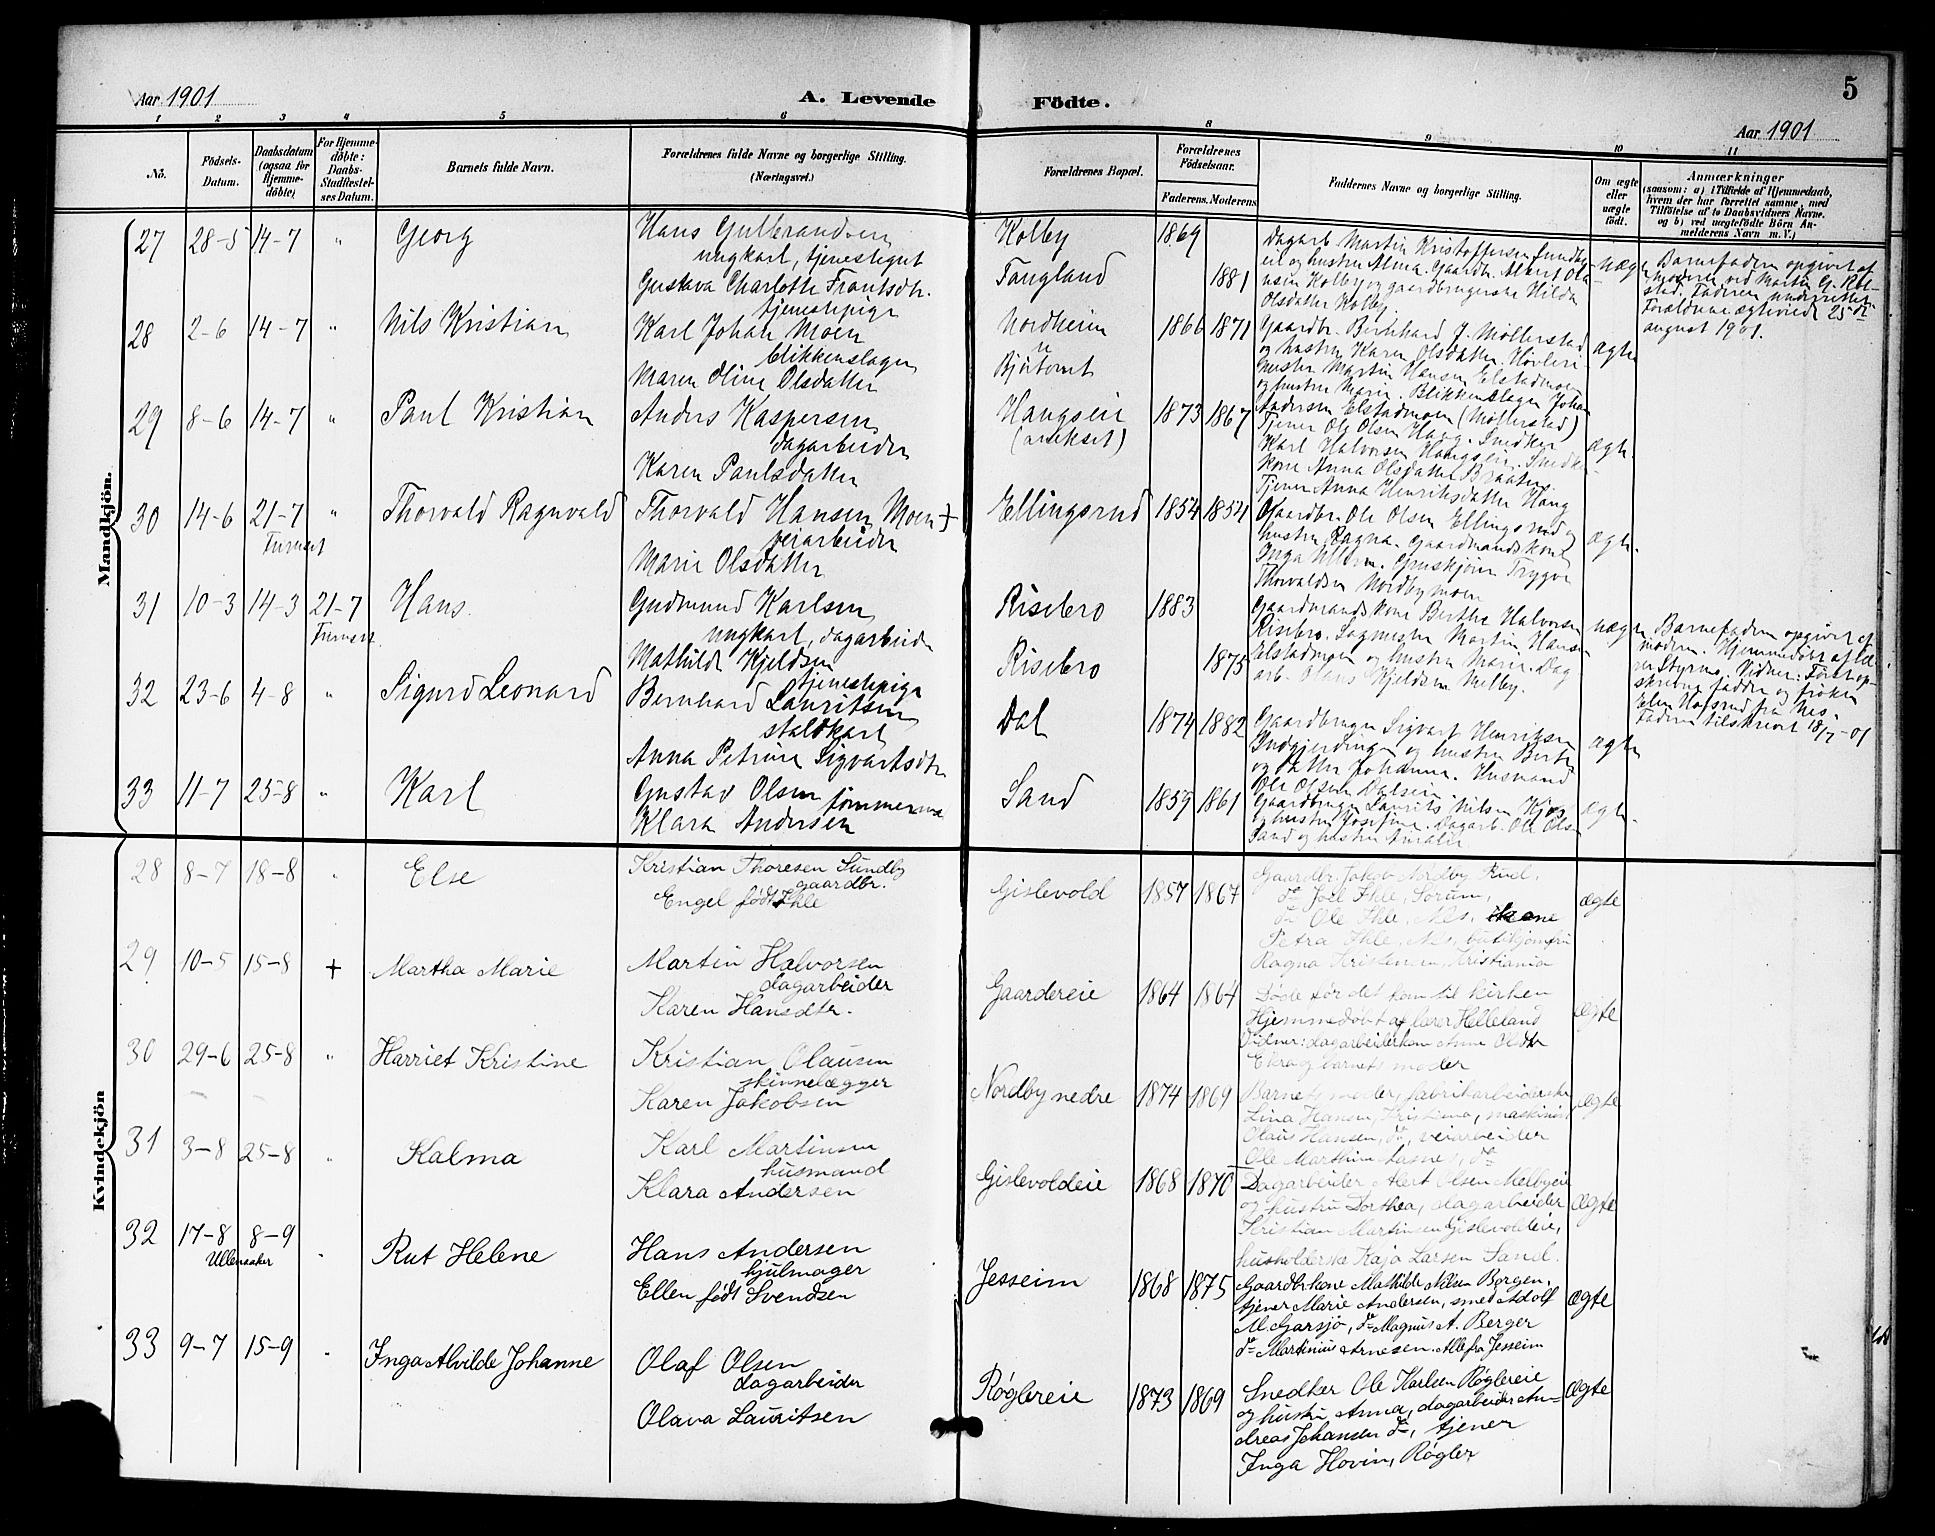 Aar 1901
A. Levende
Födte.
5
Aar 1901
1 2 3 4 5 6 8 9 10 11
No.
Födsels-
Datum.
Daabsdatum
(ogsaa for
Hjemme-
döbte)
For Hjemme-
döbte:
Daabs-
Stadfæstel-
ses Datum.
Barnets fulde Navn.
Forældrenes fulde Navne og borgerlige Stilling.
(Næringsvei.)
Forældrenes Bopæl.
Forældrenes
Födselsaar.
Faderens. Moderens
Faddernes Navne og borgerlige Stilling.
Om ægte
eller
uægte
födt.
Anmærkninger
(saasom: a) i Tilfælde af Hjemmedaab,
hvem der har forrettet samme, med
Tilföielse af to Daabsvidners Navne,
og b) ved uægtefödte Börn An-
melderens Navn m. V.)
Mandkjön.
27 28-5 14-7 " Georg
Hans Gulbrandsen
ungkarl, tjenestegut
Gustava Charlotte Frantsdtr.
tjenestepige
Kolby 1869
Tangland 1881
Dagarb. Martin Kristoffersen Sundby-
eie og hustru Alma. Gaardbr. Albert Ole
Olsdatter Kolby
uæg
Barnefaderen opgivet af
moderen ved Martin G. Kol-
stad. Faderen underrettet.
Forældrene ægteviede 25de
august 1901.
28 2-6 14-7 " Nils Kristian
Karl Johan Moen
blikkenslager
Maren Oline Olsdatter
Nordheim
Bjørtomt
1866 1871
Gaardbr. Bernhard J. Møllerstad
og hustru Karen Olsdatter. Høvleri-
Martin Hansen Elstadmoen
og hustru Marie. Blikkenslager Johan
Andersen Elstadmoen (Møllerstad)
ægte
29 8-6 14-7 " Paul Kristian
Anders Kaspersen
dagarbeider
Karen Paulsdatter
Haugseie
(anekset)
1873 1867
Tjener Ole Olsen Haug. Snedker
Karl Halvorsen Haugseie. Snedker-
kone Anna Olsdatter Braaten.
Tjener Anna Henriksdatter Haug
ægte.
30 14-6 21-7 " Thorvald Ragnvald
Furuset
Thorvald Hansen Moen +
veiarbeider
Marie Olsdatter
Ellingsrud 1854 1854
Gaardbr. Ole Olsen Ellingsrud og
hustru Ragna. Gaardmandskone
Inga Ulven. Gruskjører Trygve
Thorvaldsen Nordbymoen
ægte.
31 10-3 14-3 21-7 Hans.
Furuset
Gudmund Karlsen
ungkarl, dagarbeider
Mathilde Kjeldsen
tjenestepige
Risebro 1883
Risebro 1875
Gaardmandskone Berthe Halvorsen
Risebro. Sagmester Martin Hansen
Elstadmoen og hustru Marie. Dag
arb. Olaus Kjeldsen Melby.
uægte
Barnefaderen opgivet af
moderen. Hjemmedøbt af læ-
rer Styrmo. Vidner: Först op-
skrevne fadder og frøken
Elen Hofsrud fra Nes.
Faderen tilskrevet 18/7-01
32 23-6 4-8 " Sigurd Leonard
Bernhard Lauritsen
staldkarl
Anna Petrine Sigvartsdtr.
Dal 1874 1882
Gaardbruger Sigvart Henriksen
og hustru Berte
og datter Johanne. Husmand
Ole Olsen Dalseie
ægte
33 11-7 25-8 " Karl
Gustav Olsen tømmermand
Klara Andersen
Sand 1859 1861
Gaardbruger Laurits Nilsen Kjos
og hustru Josefine. Dagarb. Ole Olsen
Sand og hustru Amalie
ægte.
Kvindekjön
28 8-7 18-8 " Else
Kristian Thoresen Sundby
gaardbr.
Engel født Ihle
Gislevold 1857 1867
Gaardbr. Jakob Nordby Rud,
do Joel Ihle, Sørum,
do Ole Ihle, Nes,
Petra Ihle, Nes, butikjomfru
Ragna Kristensen, Kristiania
ægte
29 10-5 15-8 + Martha Marie
Martin Halvorsen
dagarbeider
Karen Hansdtr.
Gaardereie 1864 1864
Døde før det kom til kirken
Hjemmedøbt af lærer Helleland
Vidner: dagarbeiderkone Anne Olsdtr
Ekra og barnets moder
ægte
30 29-6 25-8 " Harriet Kristine
Kristian Olausen
skinnelægger
Karen Jakobsen
Nordby nedre 1874 1869
Barnets moder, fabrikarbeiderske
Lina Hansen, Kristiania, maskinist
Olaus Hansen, do, veiarbeider
Ole Marthin Aasnes, do
ægte
31 3-8 25-8 " Kalma
Karl Martinsen
husmand
Klara Andersen
Gislevoldeie 1868 1870
Dagarbeider Alert Olsen Melbyeie
og hustru Dorthea, dagarbeider
Kristian Martinsen Gislevoldeie,
husholderske Kaja Larsen Sand.
ægte
32 17-8 8-9 " Rut Helene
Ullensaker
Hans Andersen
hjulmager
Ellen født Svendsen
Jesseim 1868 1875
Gaardbr.kone Mathilde Nilsen Borgen,
tjener Marie Andersen, smed Adolf
M. Garsjø, do Magnus A. Berger
do Martinius Arnesen. Alle fra Jesseim
ægte
33 9-7 15-9 " Inga Alvilde Johanne
Olaf Olsen
dagarbeider
Olava Lauritsen
Røglereie 1873 1869
Snedker Ole Karlsen Røglereie
og hustru Anna, dagarbeider An-
dreas Johansen do, tjener
Inga Hovin, Røgler
ægte